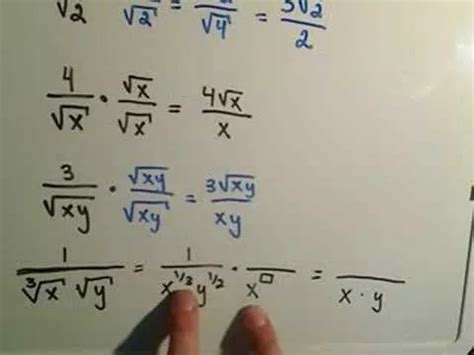 √2 √2 √4 = 3√2/2
4/√x · √x/√x = 4√x/x
3/√xy · √xy/√xy = 3√xy/xy
1/∛x √y = 1/x^1/3 y^1/2 · /x^□ = /x · y